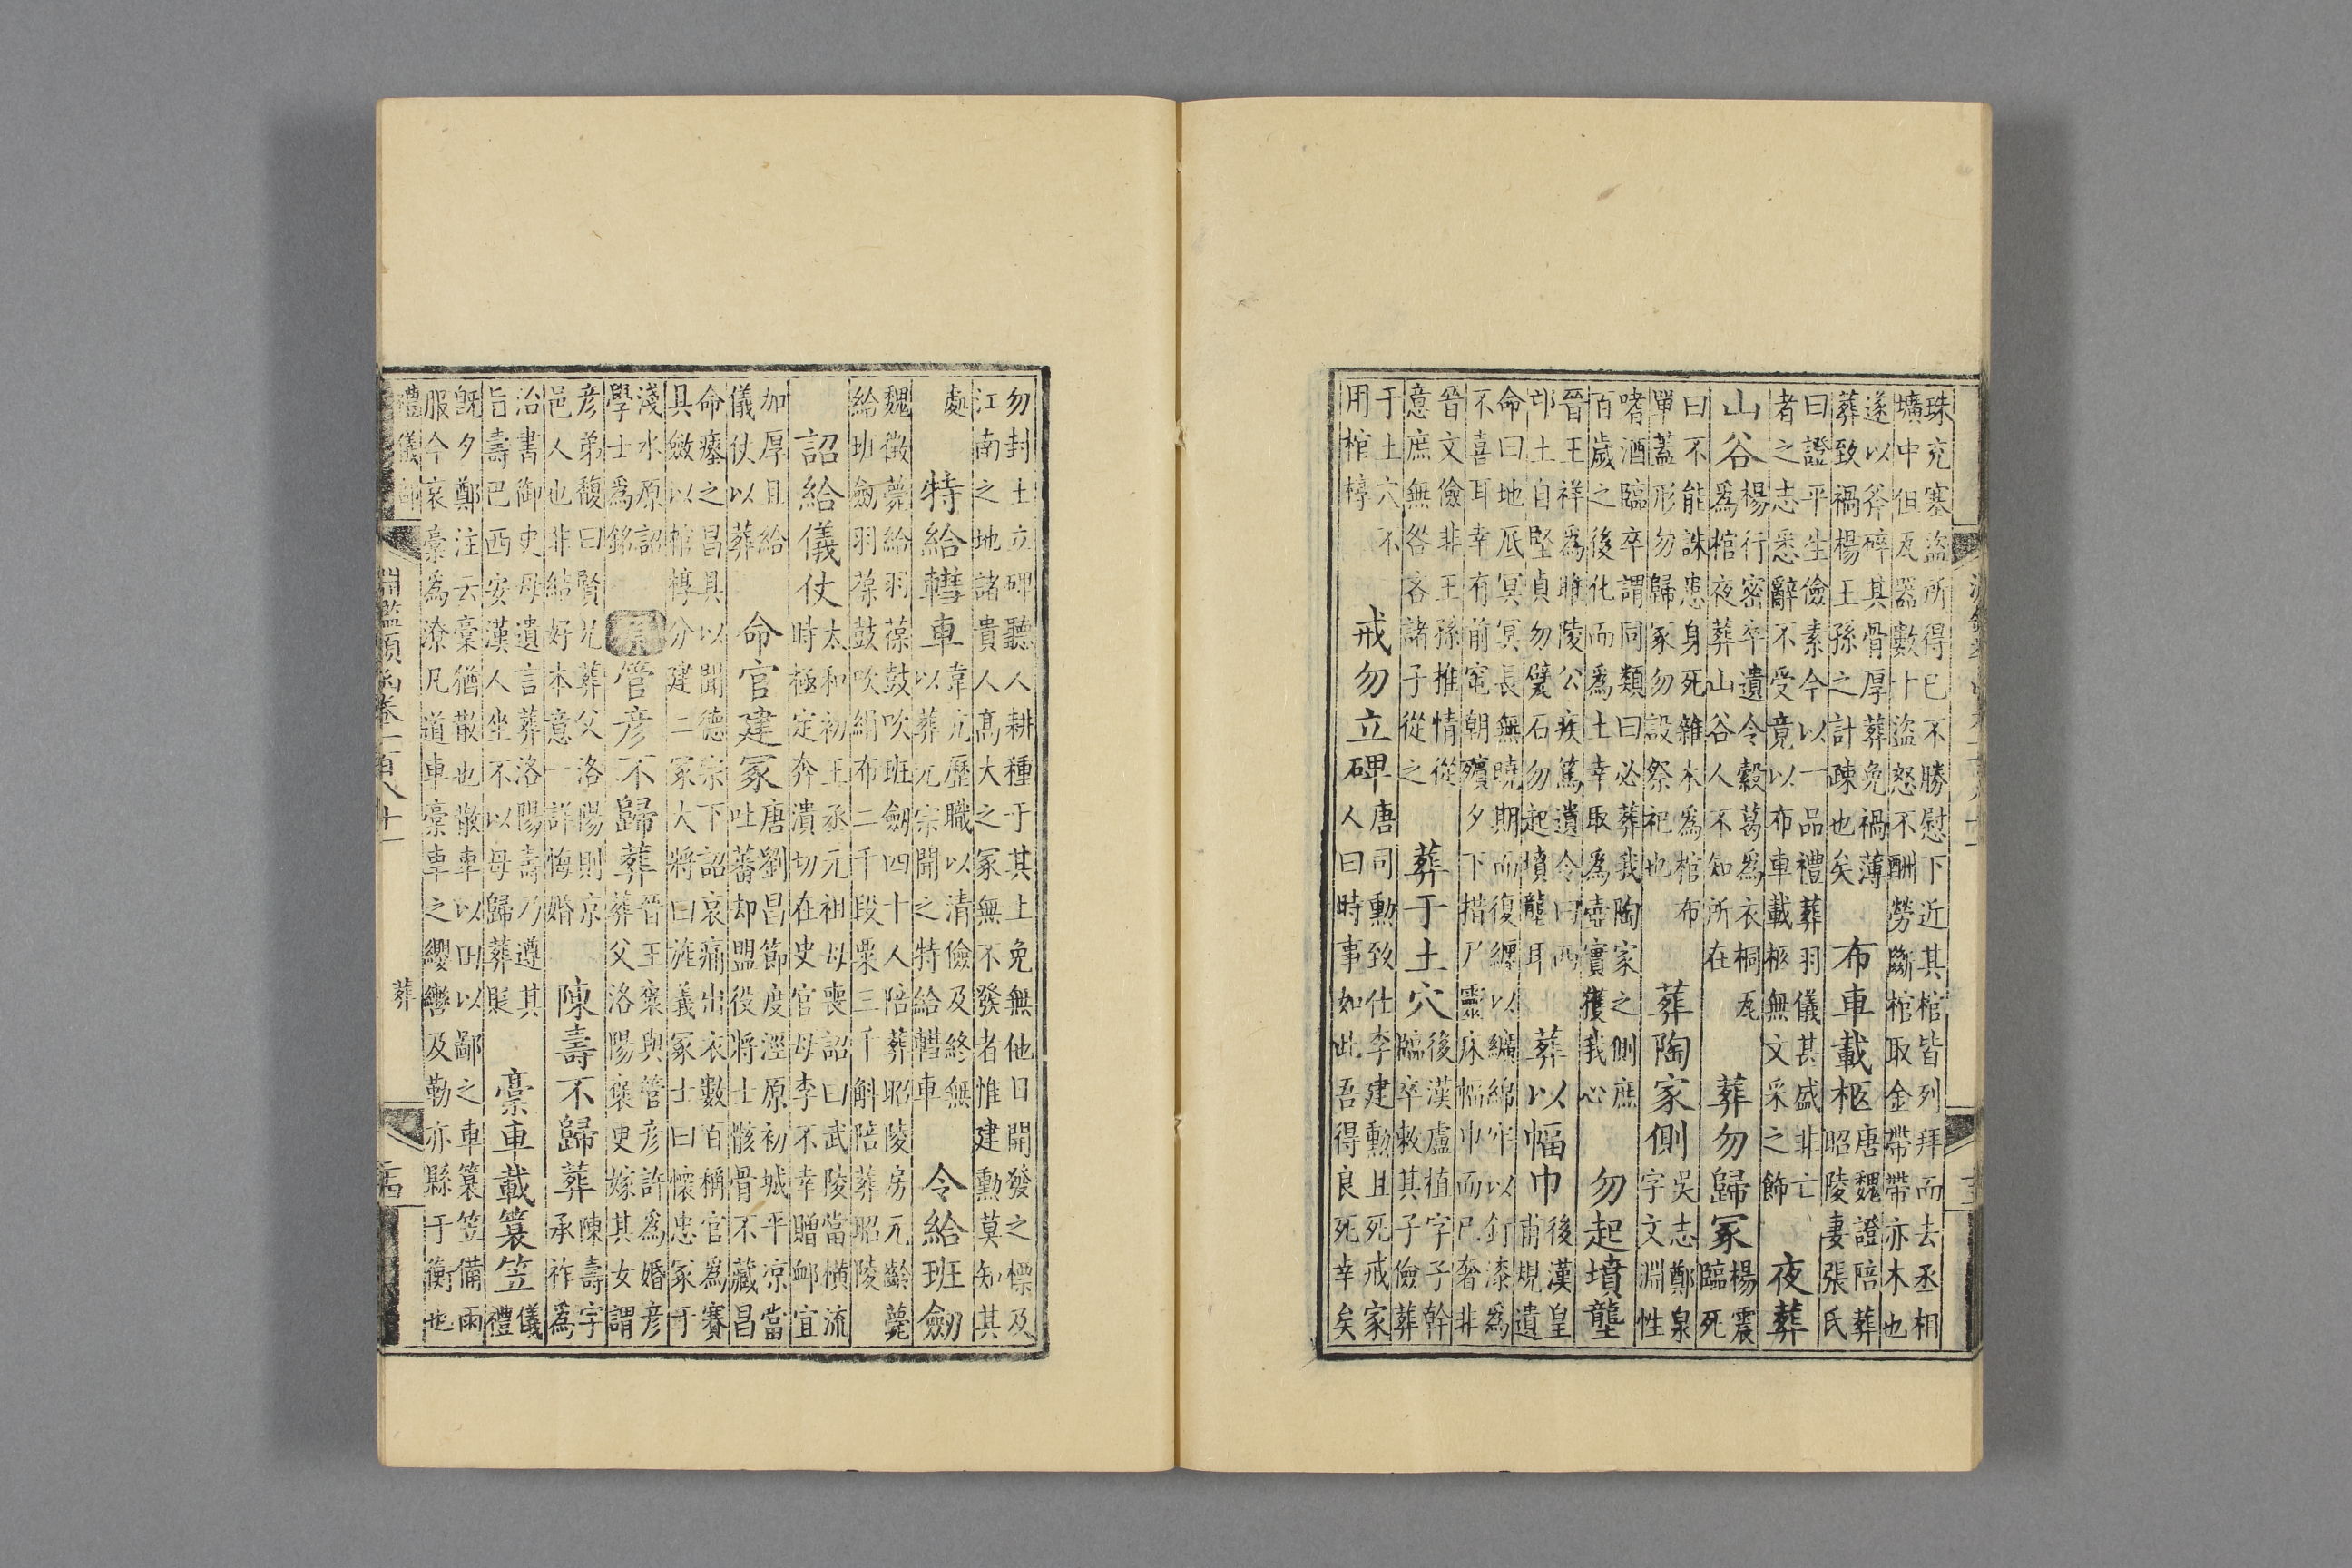 珠充塞盜所得已不勝慰下近其棺皆列拜而去丞相
壙中但瓦器數十盜怒不酬勞斷棺取金帶帶亦木也
遂以斧碎其骨厚葬免禍薄
葬致禍楊王孫之計疎也矣
布車載柩
唐魏證陪葬
昭陵妻張氏
曰證平生儉素今以一品禮葬羽儀甚盛非亡
者之志悉辭不受竟以布車載柩無文采之飾
夜葬
山谷
楊行密卒遺令穀葛爲衣桐瓦
爲棺夜葬山谷人不知所在
葬勿歸冢
楊震
臨死
曰不能誅患身死雜木爲棺布
單蓋形勿歸冢勿設祭祀也
葬陶家側
吳志鄭泉
字文淵性
嗜酒臨卒謂同類曰必葬我陶家之側庶
百歲之後化而爲土幸取爲壺實獲我心
勿起墳壟
晉王祥爲睢陵公疾篤遺令曰西
邙土自堅貞勿甓石勿起墳壟耳
葬以幅巾
後漢皇
甫規遺
命曰地厎冥冥長無曉期而復纏以纊綿牢以釘漆爲
不喜耳幸有前窀朝殯夕下措尸靈床幅巾而已奢非
晉文儉非王孫推情從
意庶無咎吝諸子從之
葬于土穴
後漢盧植字子幹
臨卒敕其子儉葬
于土穴不
用棺槨
戒勿立碑
唐司勳致仕李建勳且死戒家
人曰時事如此吾得良死幸矣
勿封土立碑聽人耕種于其上免無他日開發之標及
江南之地諸貴人高大之冢無不發者惟建勳莫知其
處
特給轊車
韋元歷職以清儉及終無
以葬元宗聞之特給轊車
令給班劒
魏徵薨給羽葆鼓吹班劒四十人陪葬昭陵房元齡薨
給班劒羽葆鼓吹絹布二千段粟三千斛陪葬昭陵
詔給儀仗
太和初王丞元祖母喪詔曰武陵當橫流
時極定奔潰切在史官母李不幸贈邺宜
加厚且給
儀仗以葬
命官建冢
唐劉昌節度涇原初城平凉當
吐蕃却盟役將士骸骨不藏昌
命瘞之昌具以聞德宗下詔哀痛出衣數百稱官爲賽
具斂以棺槨分建二冢大將曰旌義冢士曰懷忠冢于
淺水原詔
學士爲銘
管彥不歸葬
晉王裒與管彥許爲婚彥
葬父洛陽裒更嫁其女謂
彥弟馥曰賢兄葬父洛陽則京
邑人也非結好本意一詳悔婚
陳壽不歸葬
陳壽字
承祚爲
治書御史母遺言葬洛陽壽乃遵其
旨壽巴西安漢人坐不以母歸葬貶
槀車載簑笠
儀
禮
既夕鄭注云槀猶散也散車以田以鄙之車簑笠備雨
服今衮槀爲潦凡道車槀車之纓轡及勒亦縣于衡也
禮儀部
葬
淵鑑類函卷一百八十一